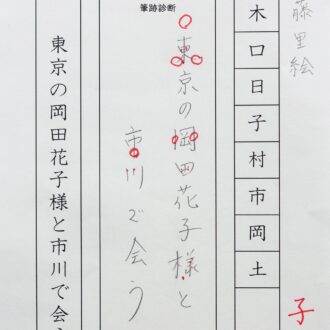 藤里絵
木口日子村市岡土
子
筆跡診断
東京の岡田花子様と
市川で会う
東京の岡田花子様と市川で会う